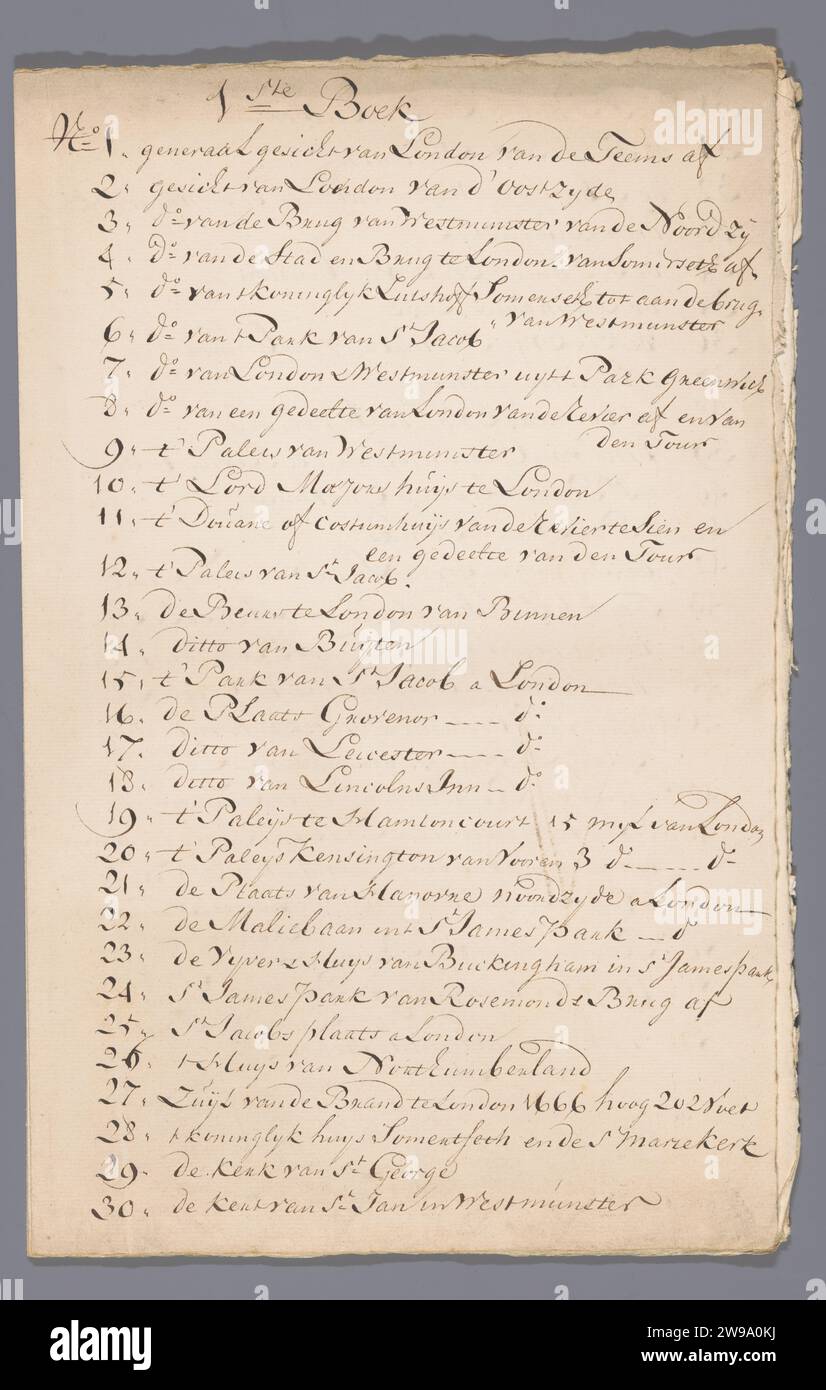 1 ste Boek
No 1. generaal gesicht van London van de Teems af
2. gesicht van London van d'oostzyde
3. do van de Brug van Westmunster van de Noord zy
4. Do van de Stad en Brug te London van Somersetz af
5. do van t koninglyk Lutshoff Somersetz tot aan de brug
van Westmunster
6. do van t Park van St Jacob
7. do van London & Westmunster uyt t Park Greenwich
8. do van een gedeelte van London van de Revier af en van
den Tour
9. t' Paleis van Westmunster
10. t' Lord Majors huijs te London
11. t' Doüane of Costumhuijs van de Revier te Sien en
een gedeelte van den Tour
12. t' Paleis van St Jacob.
13. de Beurs te London van Binnen
14. ditto van Buyten
15. t' Park van St Jacob a London
16. de Plaats Grovenor do
17. ditto van Leicester do
18. ditto van Lincolns Inn do
19. t' Paleijs te Hamtoncourt 15 myl van London
20. t' Paleys Kensington van Vooren 3 do do
21. de Plaats van Hanovre noordzyde a London
22. de Maliebaan int St James park do
23. de Vyver & Huys van Buckingham in St James park
24. St James park van Rosemonds Brug af
25. St Jacobs plaats a London
26. t Huys van Northumberland
27. Zuijl van de Brand te London 1666 hoog 202 Voet
28. t koninglyk huys Somerseth en de St Marie Kerk
29. de kerk van St George
30. de kerk van St Jan in Westmünster
alamy
alamy
Image ID: 2WA0KJ
www.alamy.com